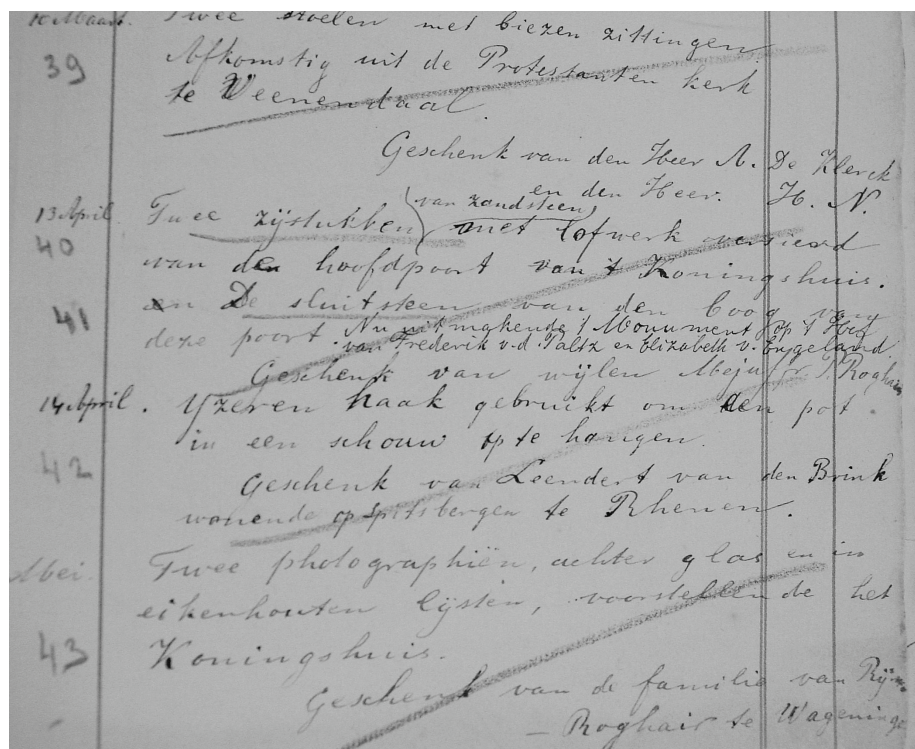 10 Maart. Twee stoelen met biezen zittingen
39 Afkomstig uit de Protestanten kerk
te Veenendaal.
Geschenk van den Heer A. De Klerck
en den Heer. H. N.
13 April. Twee zijstukken (van zandsteen) met lofwerk versierd
40 van den hoofdpoort van 't Koningshuis.
41 en De sluitsteen van den boog van
deze poort. Nu uitmakende 't Monument op 't Hof
van Frederik v.d. Paltz en Elizabeth v. Engeland.
Geschenk van wijlen Mejufr. J. Roghair
14 April. Yzeren haak gebruikt om den pot
in een schouw op te hangen.
42 Geschenk van Leendert van den Brink
wonende op Spitsbergen te Rhenen.
Mei. Twee photographiën, achter glas en in
eikenhouten lijsten, voorstellende het
43 Koningshuis.
Geschenk van de familie van
Roghair te Wagening